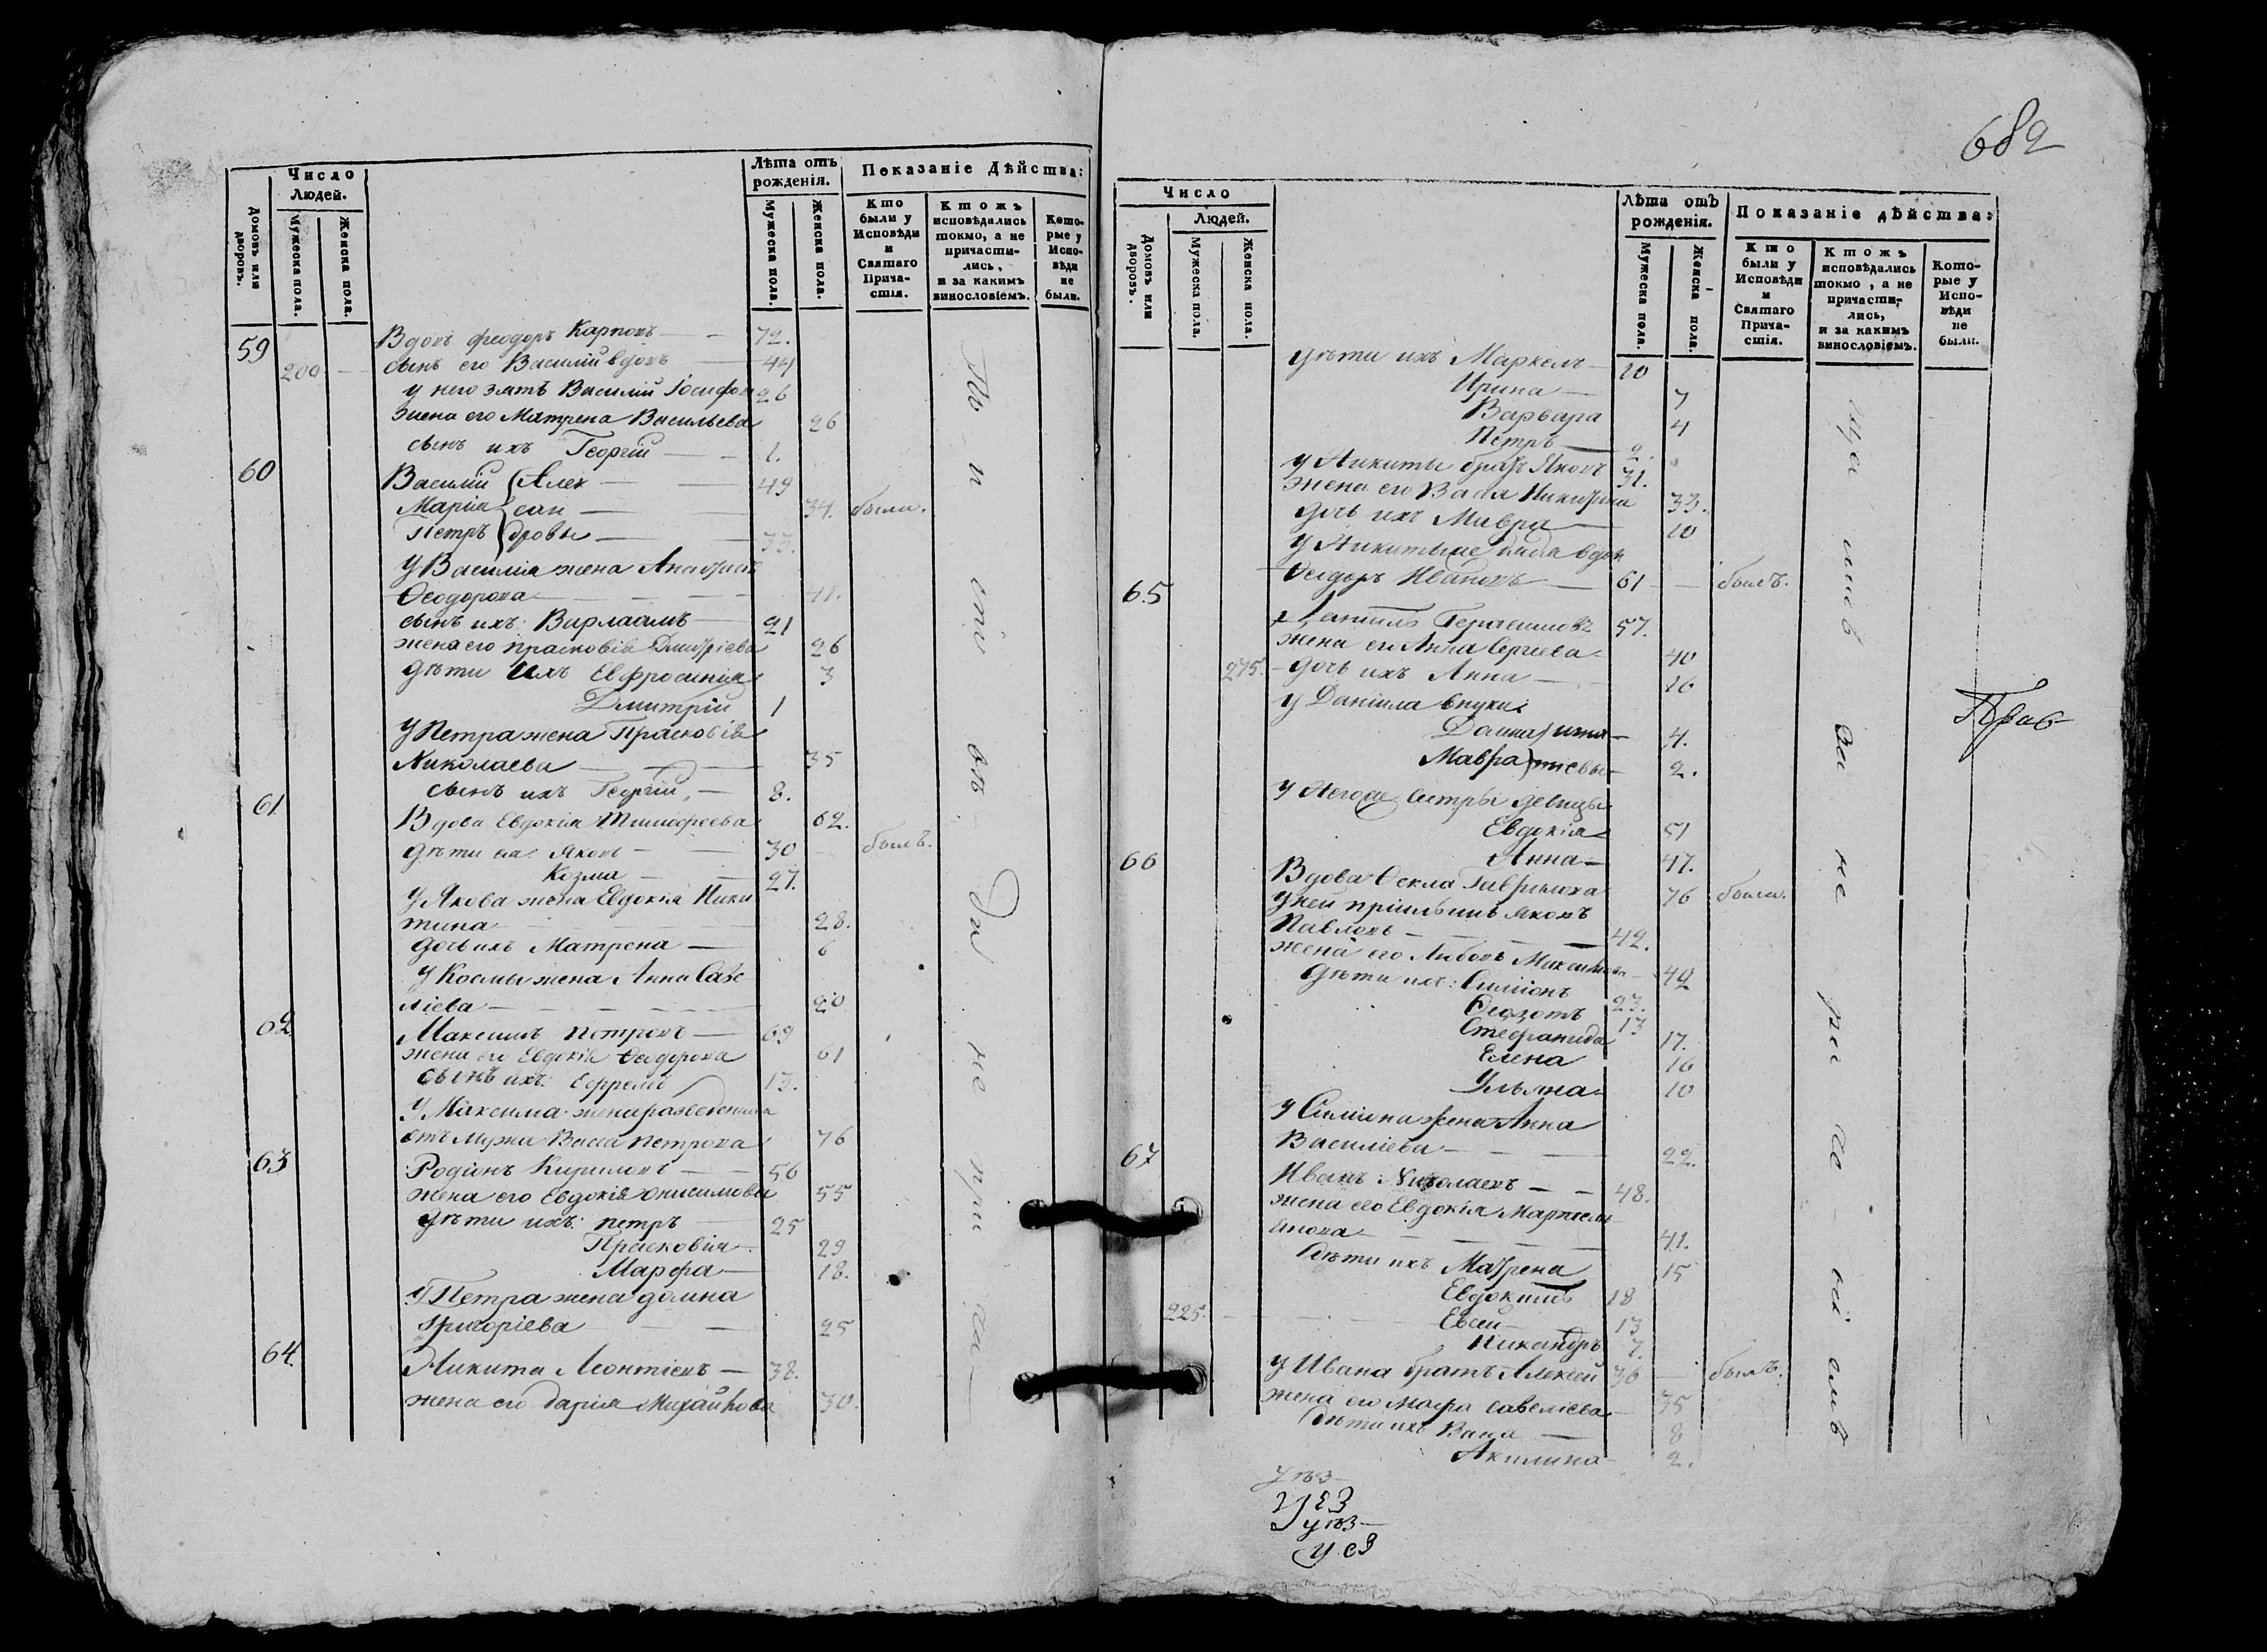 Число
Людей.
Лѣта отъ
рожденія.
Показаніе Дѣйства:
Домовъ или
дворовъ.
Мужеска пола.
Женска пола.
Мужеска пола.
Женска пола.
Кто
были у
Исповѣди
и
Святаго
Прича-
стія.
Ктожъ
исповѣдались
токмо, а не
причасти-
лись,
и за какимъ
винословіемъ.
Кото-
рые у
Испо-
вѣди
не
были.
59 Вдовъ Феодоръ Карповъ — 72.
200 — сынъ его Василій вдовъ — 44
у него зять Василій Іосифов 26
жена его Матрена Васильева 26
сынъ ихъ Георгій — 1.
60 Василій Алек — 49
Марія сан — 34. была.
Петръ дровы — 33.
У Василія жена Анастасія
Ѳеодорова — 41.
сынъ ихъ: Варлаамъ — 21
жена его Прасковія Дмитріева 26
дѣти ихъ Евфросинія 3
Дмитрій 1
У Петра жена Прасковія
Николаева — 35
сынъ ихъ Георгій — 8.
61 Вдова Евдокія Тимофеева 62.
дѣти ея: Яковъ — 30 — былъ.
Козма — 27.
У Якова жена Евдокія Ники
тина — 28.
дочь ихъ Матрена — 6
У Космы жена Анна Саве
ліева — 20
62 Максимъ Петровъ — 69
жена его Евдокія Ѳеодорова 61
сынъ ихъ: Ефремъ 13.
У Максима жена разведенная
отъ мужа Васса Петрова 76
63 Родіонъ Кириловъ — 56
жена его Евдокія Онисимова 55
дѣти ихъ: Петръ 25
Прасковія — 29
Марфа — 18.
У Петра жена Домна
Григоріева — 25
64 Никита Леонтіевъ — 38.
жена его Дарія Михайлова 30.
682
Число
Людей.
Лѣта отъ
рожденія.
Показаніе дѣйства:
Домовъ или
дворовъ.
Мужеска пола.
Женска пола.
Мужеска пола.
Женска пола.
Кто
были у
Исповѣди
и
Святаго
Прича-
стія.
Ктожъ
исповѣдались
токмо, а не
причасти-
лись,
и за какимъ
винословіемъ.
Кото-
рые у
Испо-
вѣди
не
были.
дѣти ихъ Маркелъ — 10
Ирина — 7
Варвара 4
Петръ — 2.
у Никиты братъ Яковъ 31.
жена его Васса Никитина 33.
дочь ихъ Мавра — 10
У Никиты же дядя вдовъ
Ѳеодоръ Ивановъ — 61 — былъ.
65 Даніилъ Герасимовъ 57.
жена его Анна Сергіева — 40
275. — дочь ихъ Анна — 16
У Даніила внуки:
Домна — 4.
Мавра — 2.
У него же сестры девицы
Евдокія 51
Анна — 47.
66 Вдова Ѳекла Гаврилова 76 была.
У ней пріемышъ Яковъ
Павловъ — 42.
жена его Любовь Максимова — 42
дѣти ихъ: Симіонъ 23.
Ѳедотъ 13
Стефанида 17.
Елена 16
Ульяна 10
У Симіона жена Анна
Василіева — 22.
67 Иванъ Николаевъ — 48.
жена его Евдокія Мартемь
янова — 41.
Дѣти ихъ Матрена 15
Евдокимъ 18
225. — Евсей — 13
Никандръ 7.
У Ивана братъ Алексій 36 — былъ.
жена его Марфа Савеліева — 35
Дѣти ихъ Васса — 8
Акилина — 2.